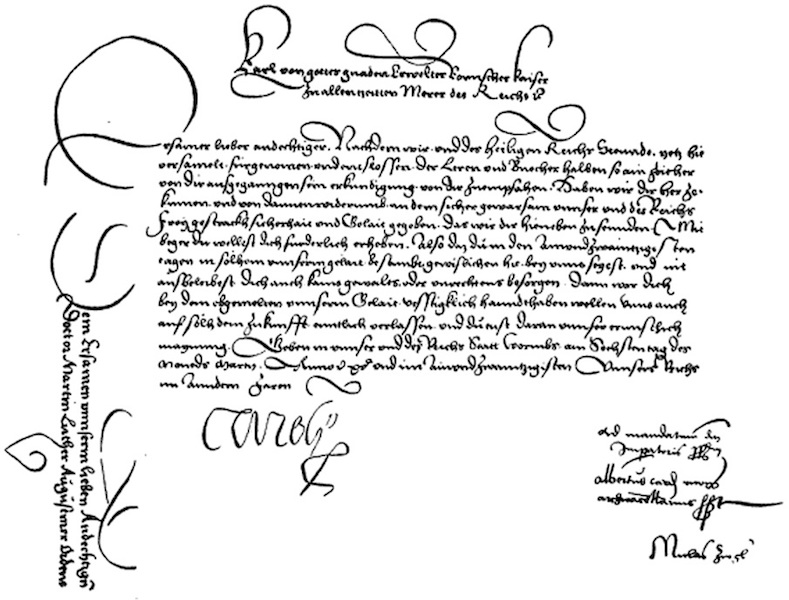 Karl von gottes gnaden Erwelter Romischer Kaiser
Zu allen zeitten Merer des Reichs etc
Ersamer lieber andechtiger. Nachdem wir vnd des heiligen Reichs Stennde, yetz hie
versamelt, furgenomen vnd entslossen, der Leren vnd Buecher halben so ain zeither
von dir ausgegangen sein erkundigung von dir Zuempfahen. Haben wir dir her Zu-
kumen vnd von dannen widerumb an dein sicher gewarsam vnnser vnd des Reichs
Frey gestrackh sicherhait vnd Gelait gegeben. Das wir dir hieneben Zusennden. Mit
beger du wellest dich furderlich erheben. Also daz du in den Ainundzwaintzigisten
tagen in solhem vnnserm gelait bestimbt gewislichen hie bey vnns seyest. vnd nit
ausbeleibest Dich auch kains gewalts oder vnrechtens besorgen. Dann wir dich
bey dem obgemelten vnnserm Gelait vesstigklich hanndthaben wellen Vnns auch
auf solh dein Zukunfft entlich verlassen. vnd du tust daran vnnser ernnstlich
maynung. Geben in vnnser vnd des Reichs Statt Wormbs am Sechsten tag des
Moneds Marty. Anno etc. xvc vnd im Ainundzwaintzigisten Vnnsers Reichs
im Anndern Jaren
Carolus
Ad mandatum dni
Imperatoris pp
Albertus card mog
archicancellarius sst
Niclas Zwyl
Dem Ersamen vnnserm lieben Andechtign
Doctor Martin Luther Augustiner Ordens